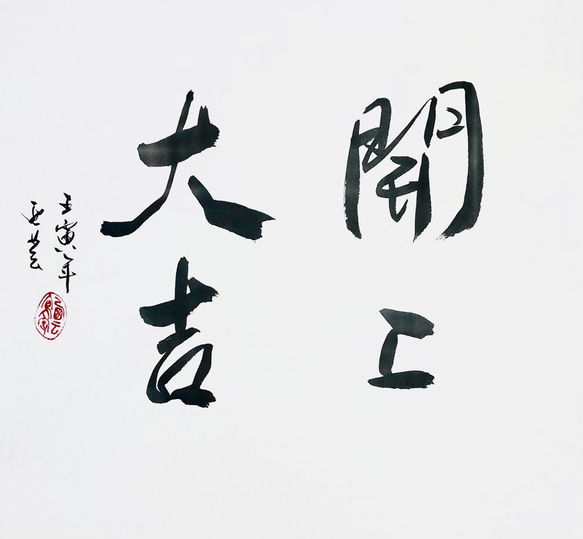 開工
大吉
壬寅年